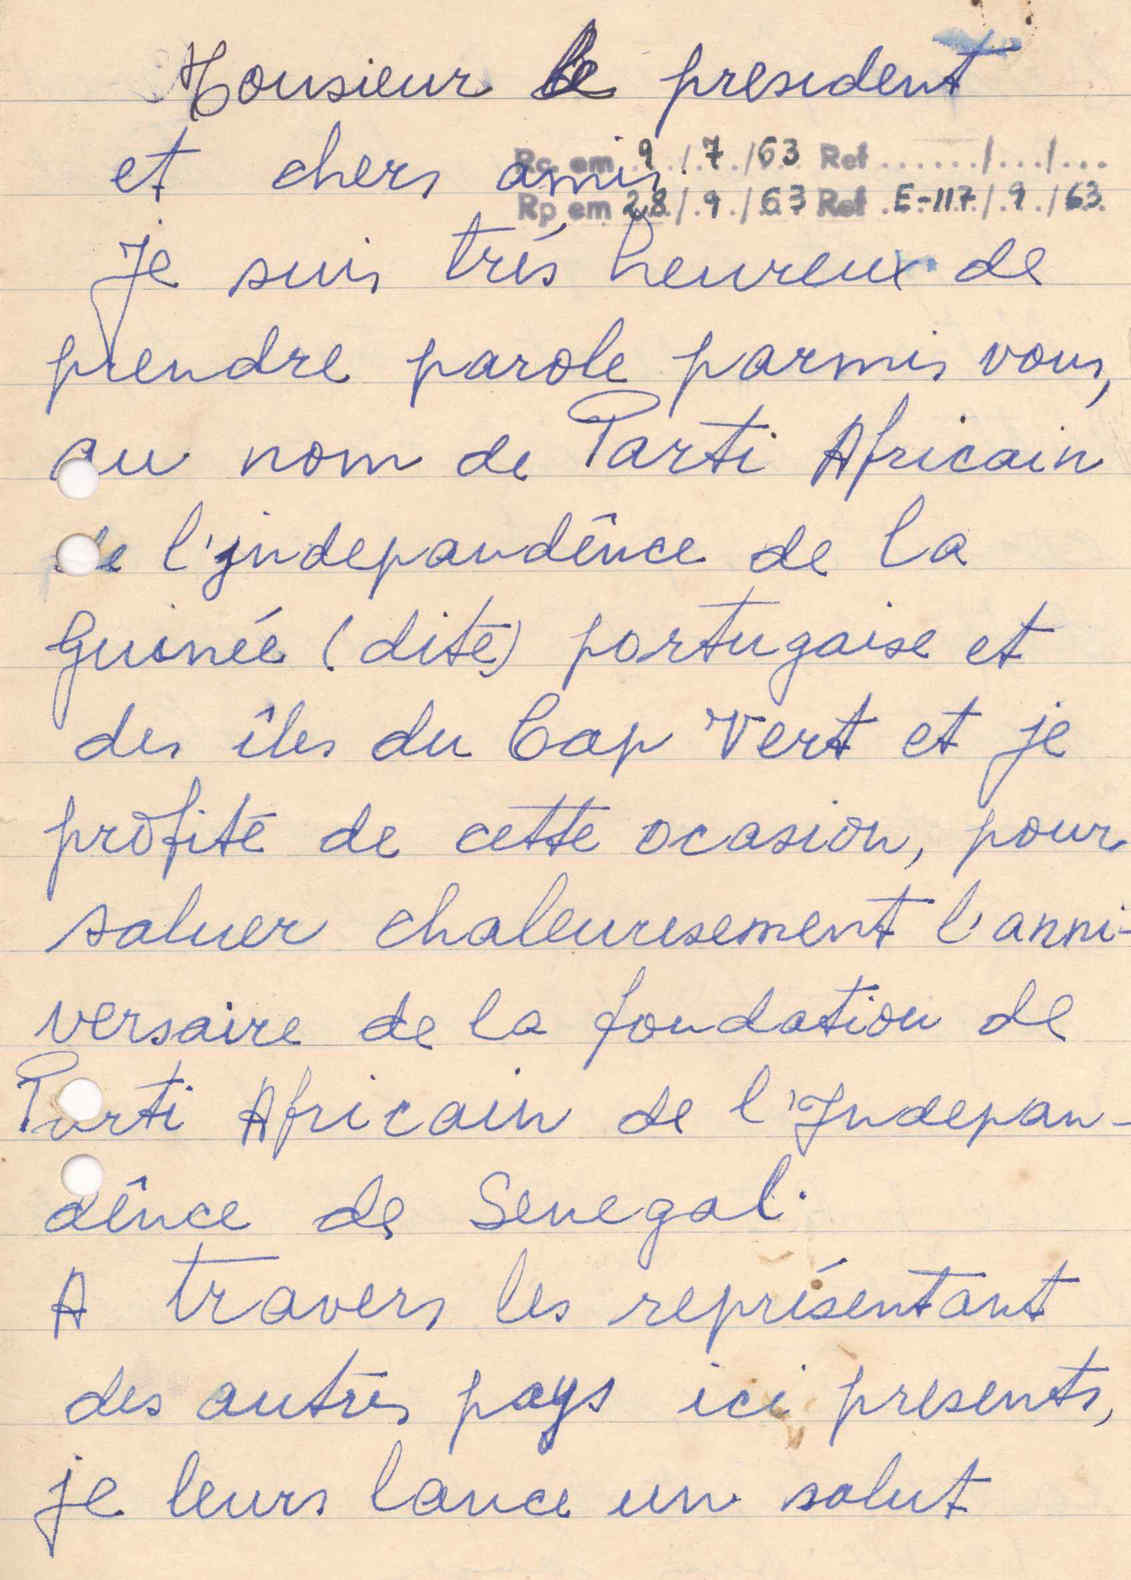 Monsieur le president
et chers amis
Rc em 9 / 7 / 63 Ref ....../.../...
Rp em 28 / 9 / 63 Ref E-117 / 9 / 63
Je suis trés heureux de
prendre parole parmis vous,
au nom de Parti Africain
de l'independênce de la
Guinée (dite) portugaise et
des îles du Cap Vert et je
profite de cette ocasion, pour
saluer chaleuresement l'anni-
versaire de la fondation de
Parti Africain de l'Indepan-
dênce de Senegal.
A travers les représentant
des autres pays ici presents,
je leurs lance un salut